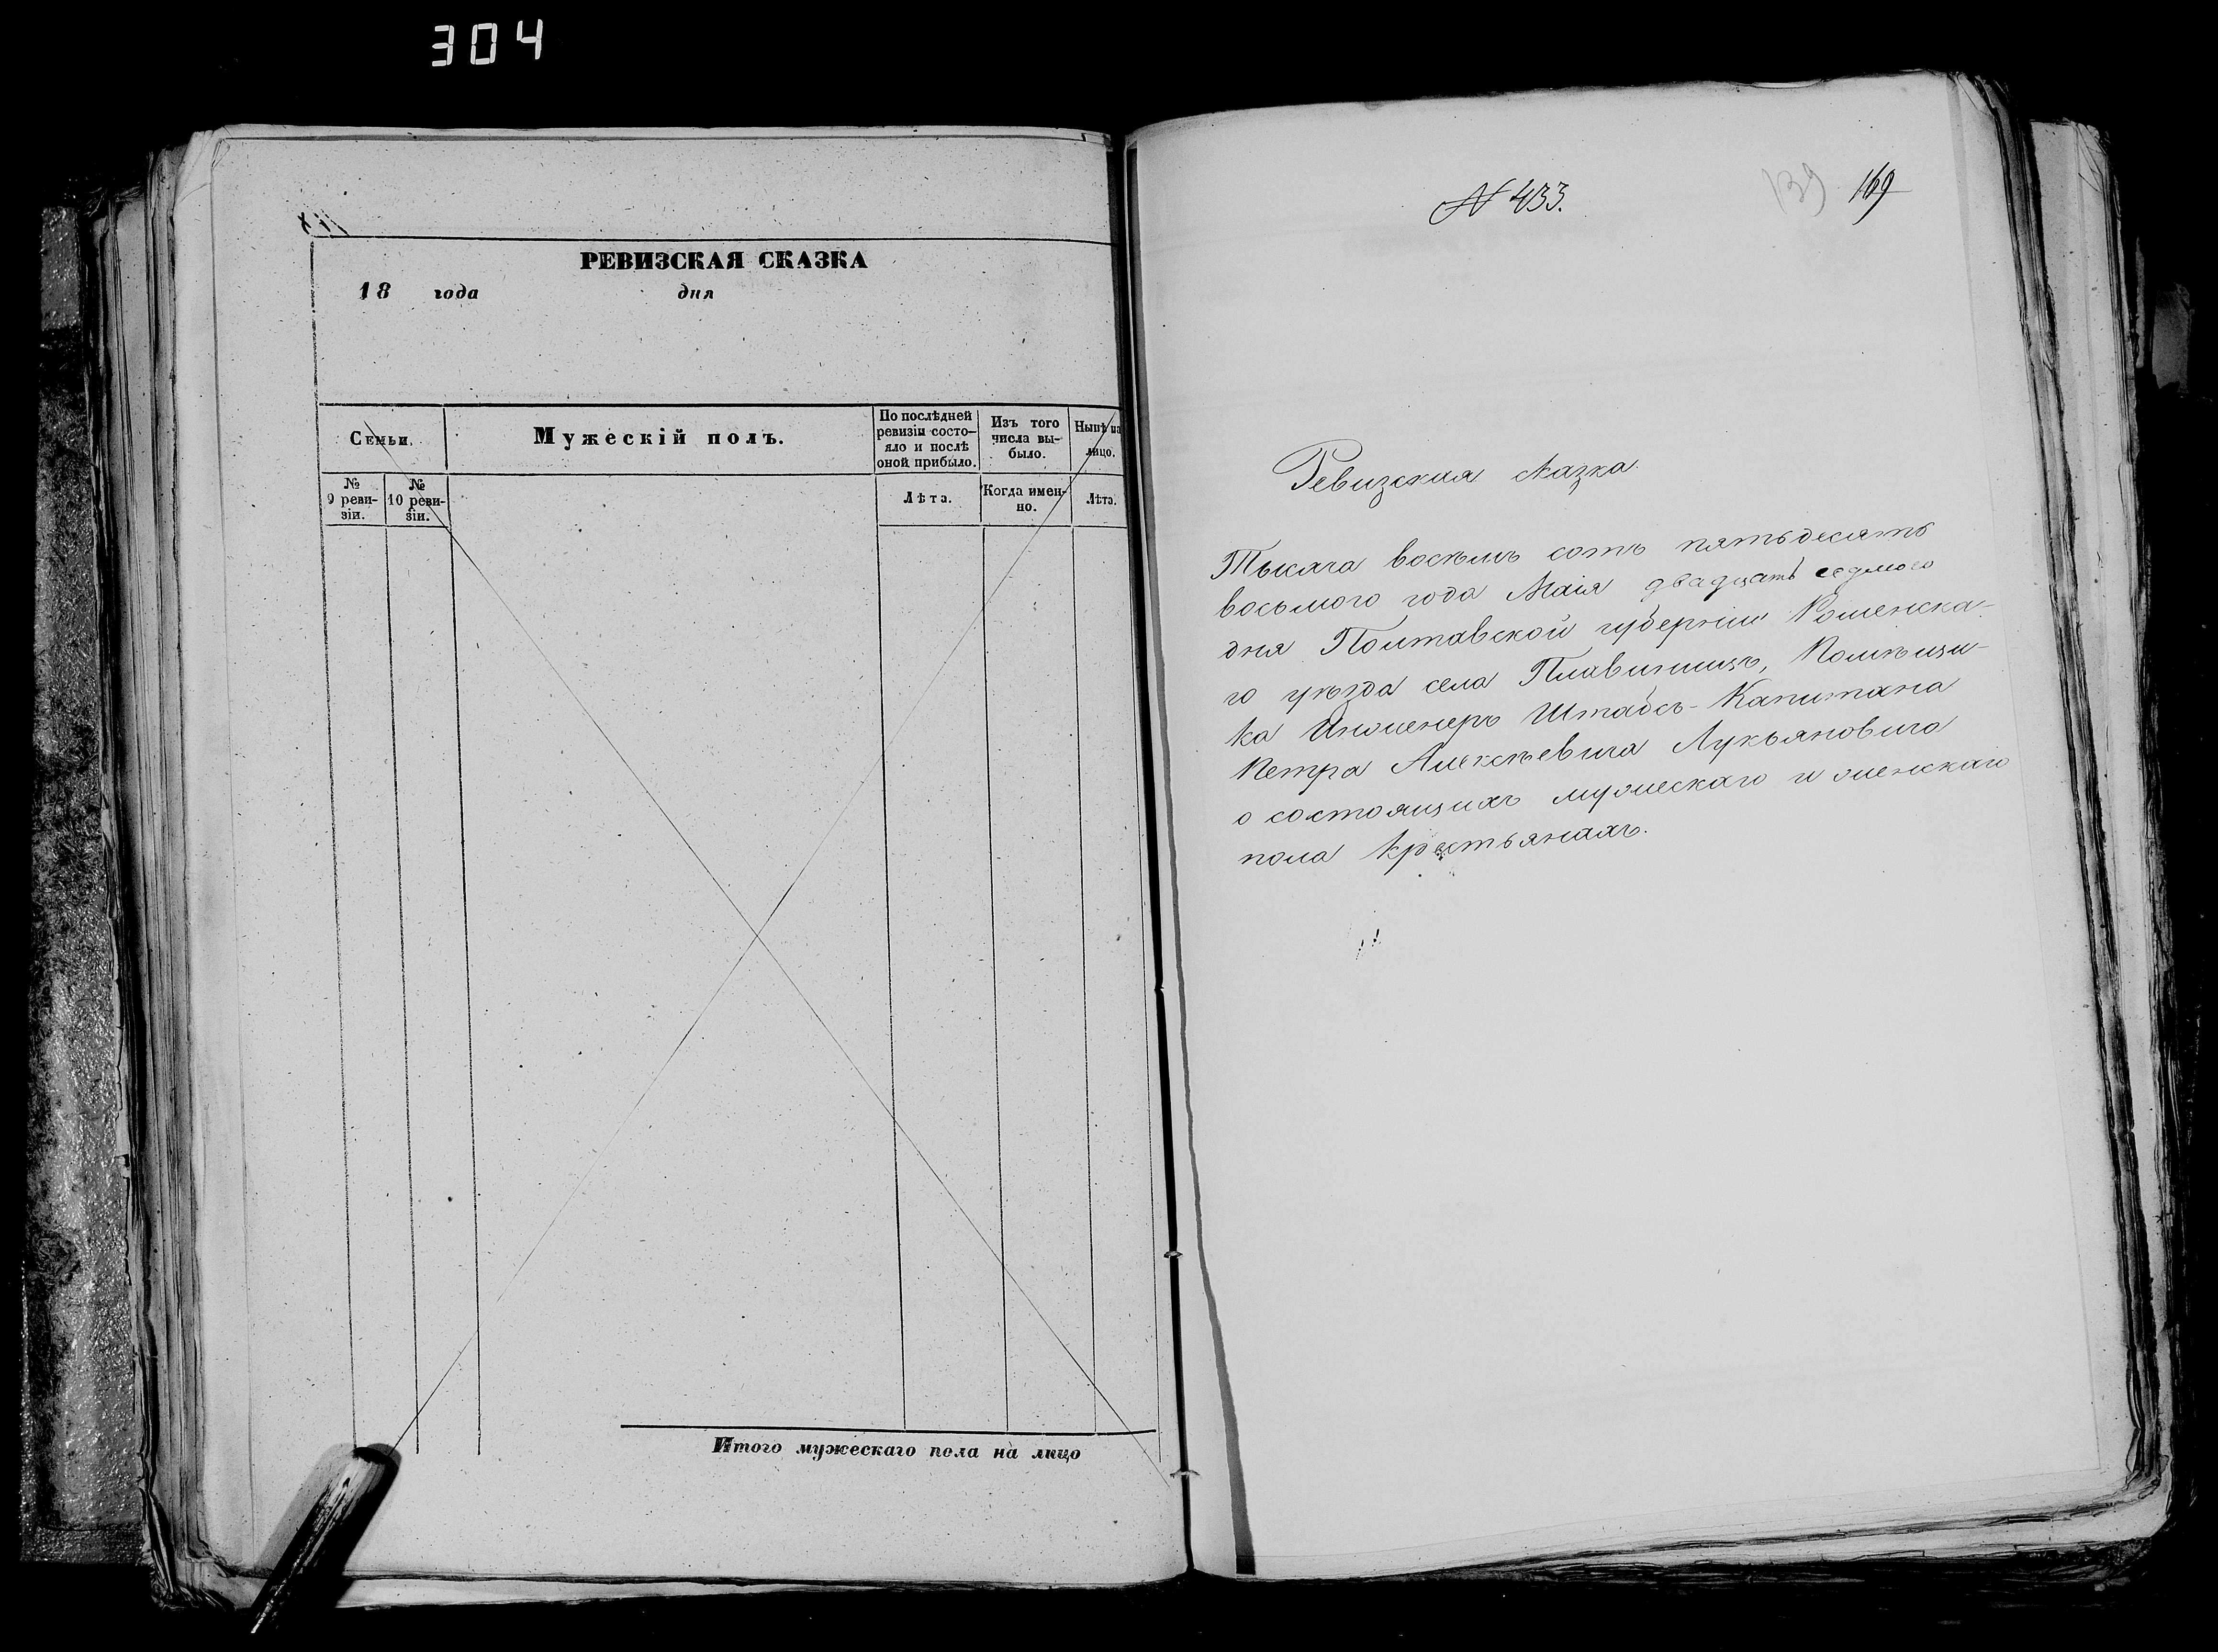 304
РЕВИЗСКАЯ СКАЗКА
18 года дня
Семьи.
Мужескій полъ.
По послѣдней
ревизіи состо-
яло и послѣ
оной прибыло.
Изъ того
числа вы-
было.
Нынѣ на
лицо.
№
9 реви-
зіи.
№
10 реви-
зіи.
Лѣта.
Когда имен-
но.
Лѣта.
Итого мужескаго пола на лицо
N 433.
139 169
Ревизская сказка
Тысяча восемь сотъ пятьдесятъ
восьмого года Маія двадцать седмого
дня Полтавской губерніи Роменска-
го уѣзда села Плавинищъ, Помѣщи-
ка Инженеръ Штабсъ-Капитана
Петра Алексѣевича Лукьяновича
о состоящихъ мужескаго и женскаго
пола крестьянахъ.